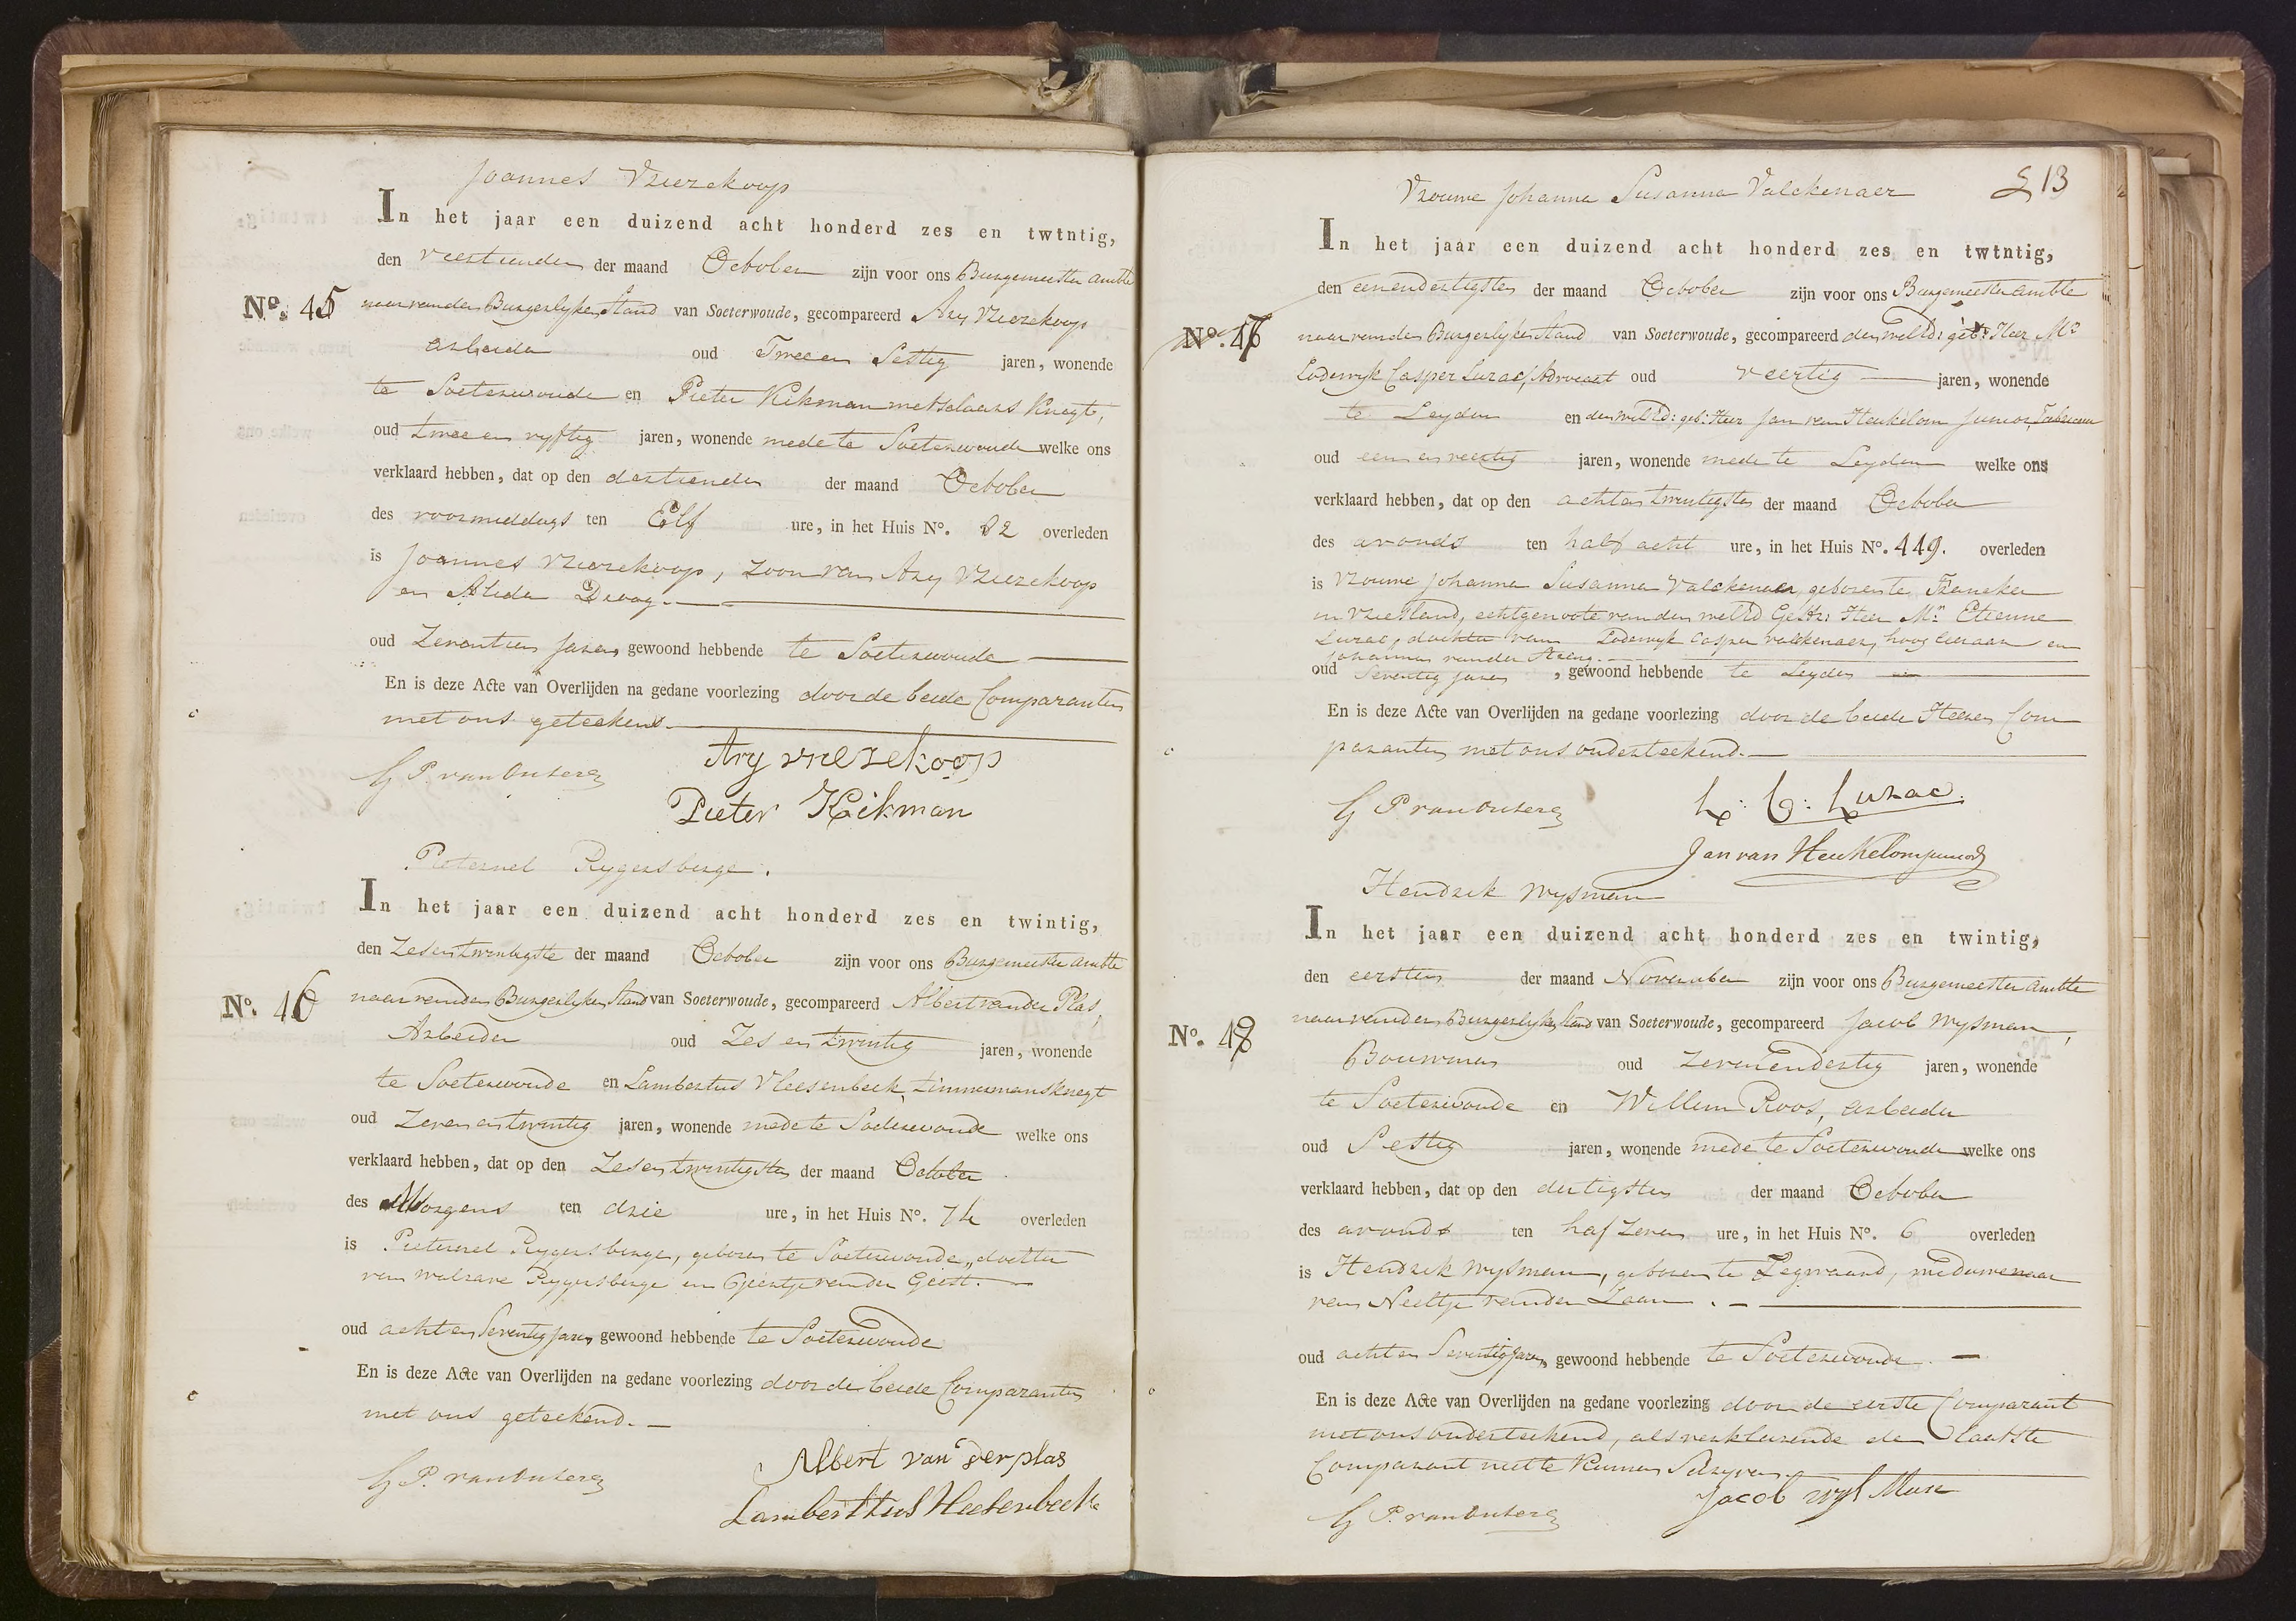 Joannes Vrierekoop
In het jaar een duizend acht honderd zes en twtntig,
den veertienden der maand October zijn voor ons Burgemeester ambte
No. 45 naar van den Burgerlyken Stand van Soeterwoude, gecompareerd Ary Vrierekoop
arbeider oud Twee en Sestig jaren, wonende
te Soeterwoude en Pieter Kikman metselaars Knegt,
oud twee en vyftig jaren, wonende mede te Soeterwoude welke ons
verklaard hebben, dat op den dertienden der maand October
des voormiddags ten Elf ure, in het Huis No. 82 overleden
is Joannes Vrierekoop, zoon van Ary Vrierekoop
en Alida Droog.
oud Zeventien Jaren gewoond hebbende te Soeterwoude
En is deze Acte van Overlijden na gedane voorlezing door de beide Comparanten
met ons geteekend.
Ary vrierekoop
Pieter Kikman
Pieternel Rygersberge.
In het jaar een duizend acht honderd zes en twintig,
den Zesentwintigste der maand October zijn voor ons Burgemeester ambte
No. 46 naar van den Burgerlyken Stand van Soeterwoude, gecompareerd Albert van der Plas,
Arbeider oud Zes en twintig jaren, wonende
te Soeterwoude en Lambertus Vleesenbeek, timmermansknegt
oud Zeven en twintig jaren, wonende mede te Soeterwoude welke ons
verklaard hebben, dat op den Zesentwintigsten der maand October
des Morgens ten drie ure, in het Huis No. 74 overleden
is Pieternel Rygersberge, geboren te Soeterwoude, dochter
van Walrave Rygersberge en Geertje van der Geest.
oud acht en Seventig Jaren gewoond hebbende te Soeterwoude
En is deze Acte van Overlijden na gedane voorlezing door de beide Comparanten
met ons geteekend.
Albert van der plas
213
Vrouwe Johanna Susanna Valckenaer
In het jaar een duizend acht honderd zes en twtntig,
den eenendertigsten der maand October zijn voor ons Burgemeester ambte
No. 47 naar van den Burgerlyken Stand van Soeterwoude, gecompareerd den weled: geb: Heer Mr
Lodewyk Casper Luzac, Advocaat oud veertig jaren, wonende
te Leyden en den weled: geb: Heer Jan van Heukelom Junior,
oud een en veertig jaren, wonende mede te Leyden welke ons
verklaard hebben, dat op den achtentwintigsten der maand October
des avonds ten half acht ure, in het Huis No. 449. overleden
is Vrouwe Johanna Susanna Valckenaer, geboren te Franeker
in Vriesland, echtgenoote van den weled Gestr: Heer Mr. Etienne
Luzac, dochter van Lodewyk Casper Valckenaer, hoogleeraar en
Johanna van der
oud Seventig jaren, gewoond hebbende te Leyden
En is deze Acte van Overlijden na gedane voorlezing door de beide Heeren Com
paranten met ons onderteekend.
L: C: Luzac.
Jan van Heukelom junior
Hendrik Wysman
In het jaar een duizend acht honderd zes en twintig,
den eersten der maand November zijn voor ons Burgemeester ambte
No. 48 naar van den Burgerlyken Stand van Soeterwoude, gecompareerd Jacob Wysman,
Bouwman oud zevenendertig jaren, wonende
te Soeterwoude en Willem Roos, arbeider
oud Sestig jaren, wonende mede te Soeterwoude welke ons
verklaard hebben, dat op den dertigsten der maand October
des avonds ten half Zeven ure, in het Huis No. 6 overleden
is Hendrik Wysman, geboren te Zegwaard, weduwenaar
van Neeltje van der Laan.
oud acht en Seventig Jaren, gewoond hebbende te Soeterwoude.
En is deze Acte van Overlijden na gedane voorlezing door de eerste Comparant
met ons onderteekend, als verklarende de laatste
Comparant niet te Kunnen Schryven.
Jacob wysMan